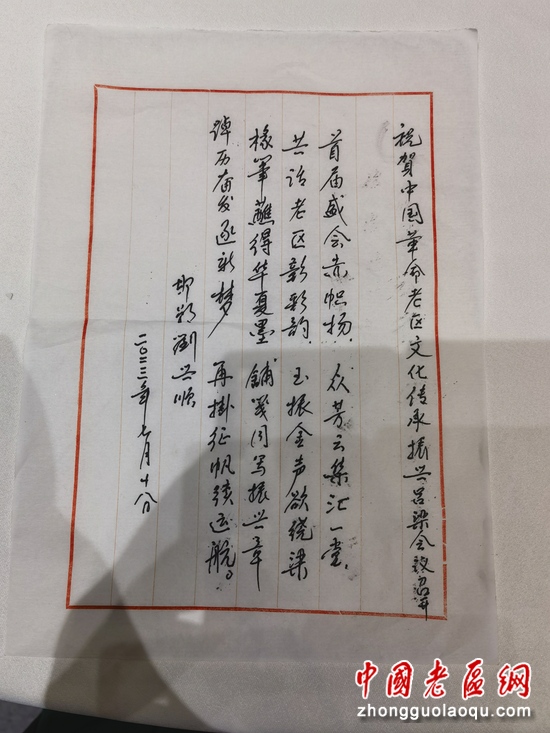 祝賀中国革命老区文化传承振兴吕梁会议召开
首届盛会赤帜扬，众芳云集汇一堂，
共话老区新彩韵，玉振金声欲绕梁
椽筆蘸得华夏墨 铺笺同写振兴章
踔历奋发逐新梦 再掛征帆续远航。
邯郸劉兴顺
二〇二三年七月十八日
中國老區網
zhongguolaoqu.com